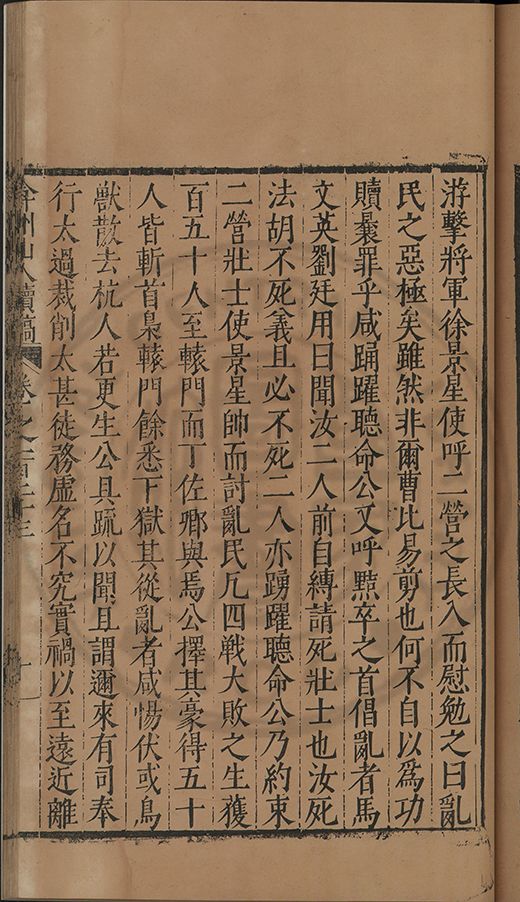 游擊將軍徐景星使呼二營之長入而慰勉之曰亂
民之惡極矣雖然非爾曹比易剪也何不自以爲功
贖曩罪乎咸踊躍聽命公又呼黠卒之首倡亂者馬
文英劉廷用曰聞汝二人前自縛請死壯士也汝死
法胡不死義且必不死二人亦踴躍聽命公乃約束
二營壯士使景星帥而討亂民凡四戰大敗之生獲
百五十人至轅門而丁佐鄉與焉公擇其豪得五十
人皆斬首梟轅門餘悉下獄其從亂者咸愓伏或鳥
獸散去杭人若更生公具疏以聞且謂邇來有司奉
行太過裁削太甚徒務虛名不究實禍以至遠近離
州山人續稿 卷之一百三十三